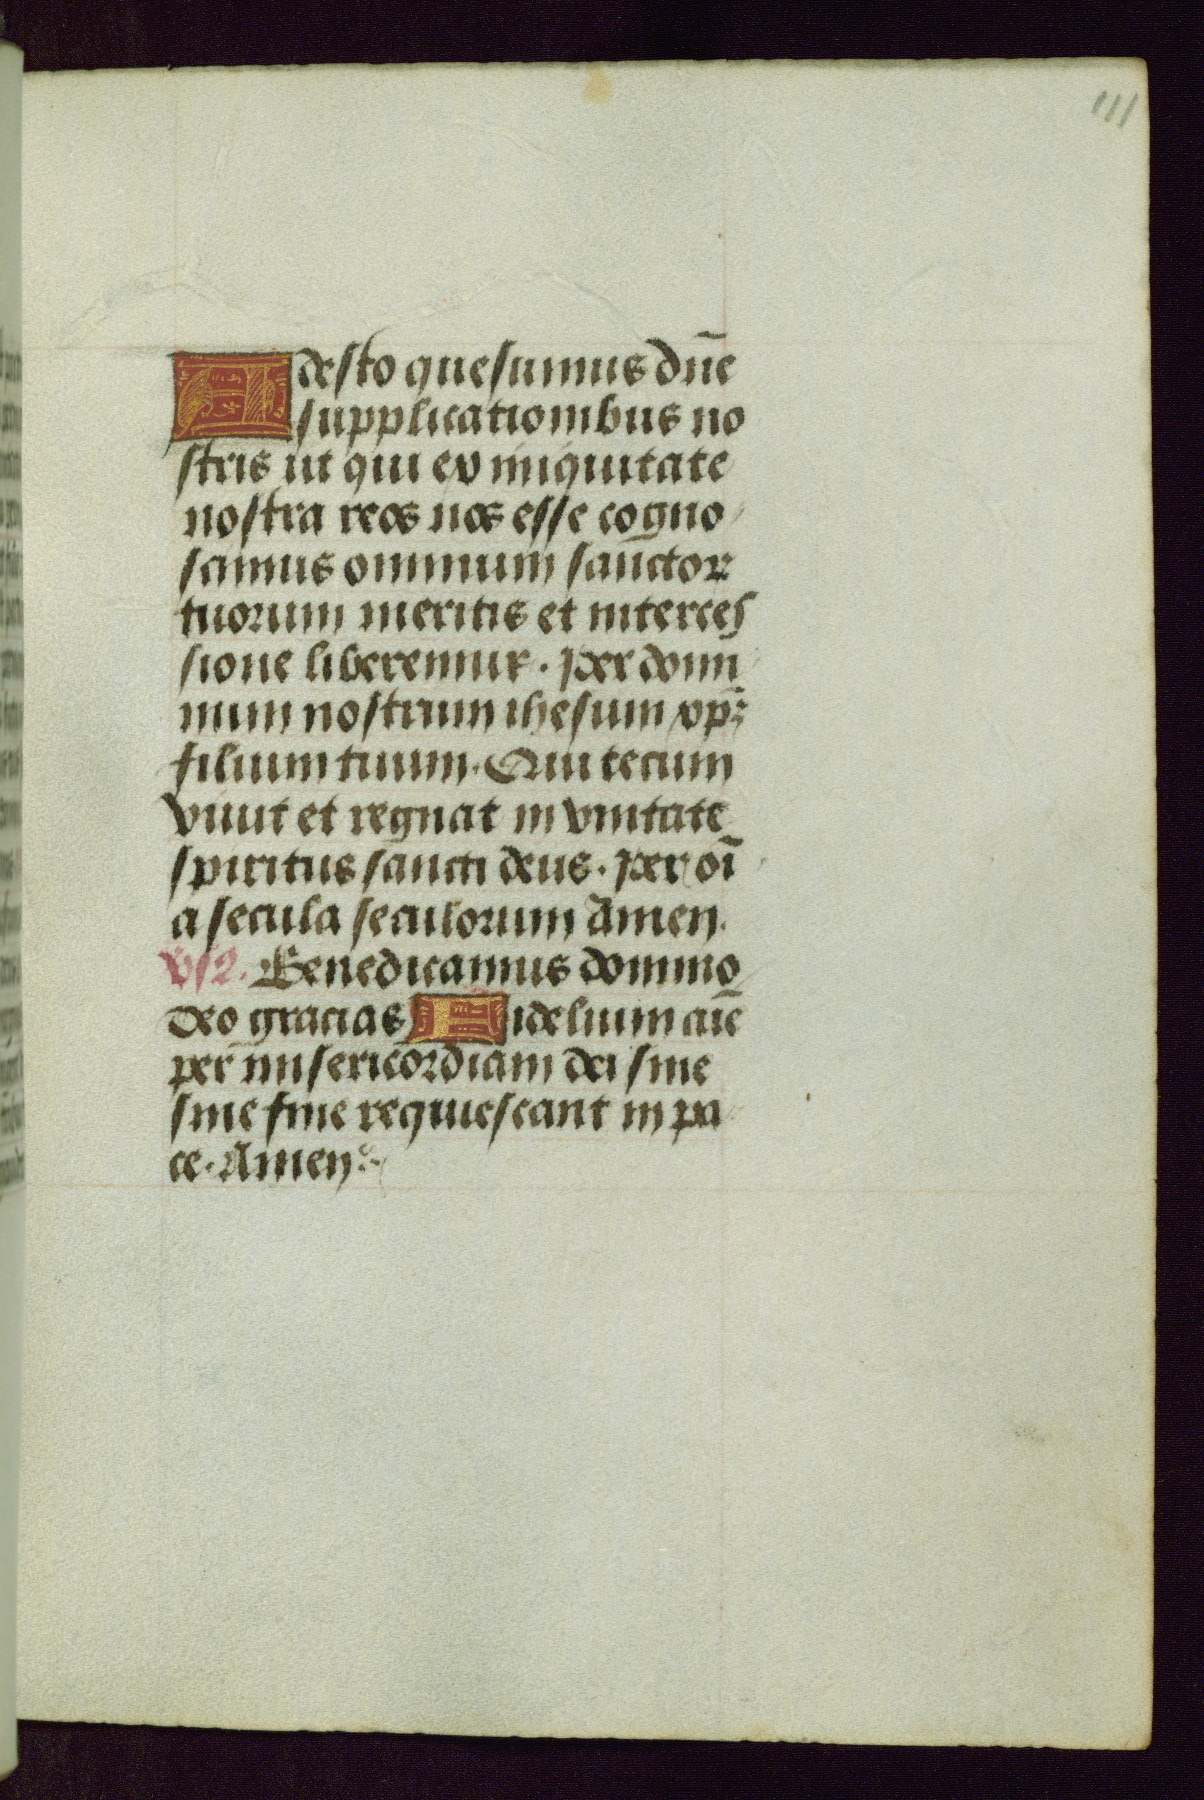 111
Adesto quesumus dñe
supplicationibus no
stris ut qui ex iniquitate
nostra reos nos esse cogno
scimus omnium sanctor
tuorum meritis et interces
sione liberemur. Per domi
num nostrum ihesum xp̄m
filium tuum. Qui tecum
viuit et regnat in vnitate
spiritus sancti deus. Per oī
a secula seculorum Amen.
Benedicamus domino
Deo gracias Fidelium aīe
per misericordiam dei sine
sine fine requiescant in pa
ce. Amen